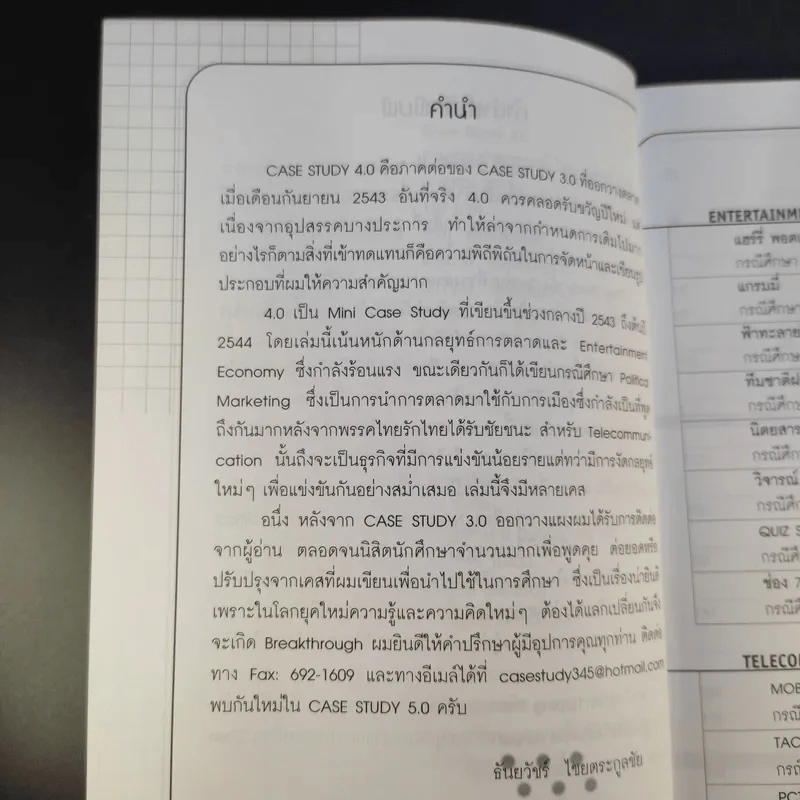 คำนำ
CASE STUDY 4.0 คือภาคต่อของ CASE STUDY 3.0 ที่ออกวางตลาด
เมื่อเดือนกันยายน 2543 อันที่จริง 4.0 ควรคลอดรับขวัญปีใหม่ แต่
เนื่องจากอุปสรรคบางประการ ทำให้ล่าจากกำหนดการเดิมไปมาก
อย่างไรก็ตามสิ่งที่เข้าทดแทนก็คือความพิถีพิถันในการจัดหน้าและเขียนรูป
ประกอบที่ผมให้ความสำคัญมาก
4.0 เป็น Mini Case Study ที่เขียนขึ้นช่วงกลางปี 2543 ถึงต้นปี
2544 โดยเล่มนี้เน้นหนักด้านกลยุทธ์การตลาดและ Entertainment
Economy ซึ่งกำลังร้อนแรง ขณะเดียวกันก็ได้เขียนกรณีศึกษา Political
Marketing ซึ่งเป็นการนำการตลาดมาใช้กับการเมืองซึ่งกำลังเป็นที่พูด
ถึงกันมากหลังจากพรรคไทยรักไทยได้รับชัยชนะ สำหรับ Telecommuni-
cation นั้นถึงจะเป็นธุรกิจที่มีการแข่งขันน้อยรายแต่ทว่ามีการงัดกลยุทธ์
ใหม่ๆ เพื่อแข่งขันกันอย่างสม่ำเสมอ เล่มนี้จึงมีหลายเคส
อนึ่ง หลังจาก CASE STUDY 3.0 ออกวางแผงผมได้รับการติดต่อ
จากผู้อ่าน ตลอดจนนิสิตนักศึกษาจำนวนมากเพื่อพูดคุย ต่อยอดหรือ
ปรับปรุงจากเคสที่ผมเขียนเพื่อนำไปใช้ในการศึกษา ซึ่งเป็นเรื่องน่ายินดี
เพราะในโลกยุคใหม่ความรู้และความคิดใหม่ๆ ต้องได้แลกเปลี่ยนกันจึง
จะเกิด Breakthrough ผมยินดีให้คำปรึกษาผู้มีอุปการคุณทุกท่าน ติดต่อ
ทาง Fax: 692-1609 และทางอีเมล์ได้ที่ casestudy345@hotmail.com
พบกันใหม่ใน CASE STUDY 5.0 ครับ
ธันยวัชร์ ไชยตระกูลชัย
ENTERTAINME
แฮร์รี่ พอตเ
กรณีศึกษา
แกรมมี่
กรณีศึกษา
ฟ้าทะลาย
กรณีศึกษ
ทีมชาติฝ
กรณีศึก
นิตยสาร
กรณีศึก
วิจารณ์
กรณีศึก
QUIZ S
กรณีศึ
ช่อง 7
กรณีศึ
TELECO
MOB
กรณี
TAC
กรณ
PCT